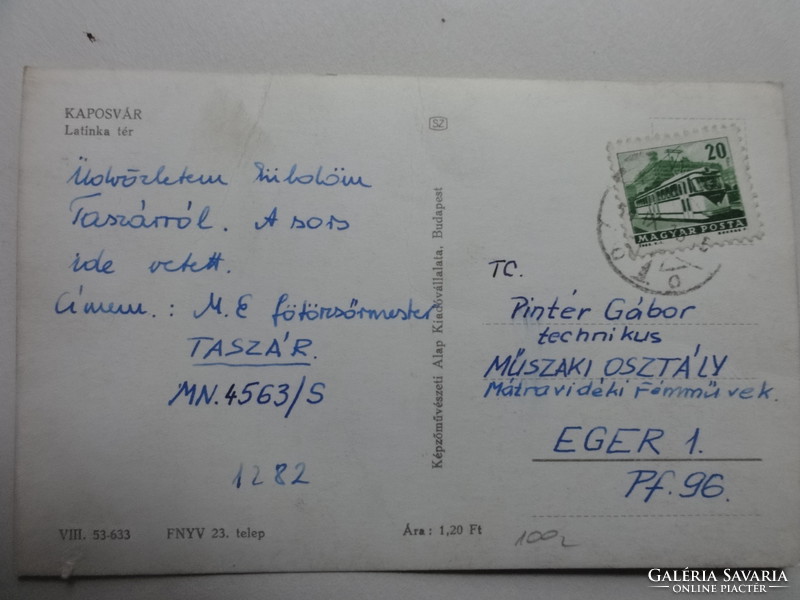 KAPOSVÁR
Latinka tér
Üdvözletem küldöm
Taszárról. A sors
ide vetett.
Címem.: M. E főtörzsőrmester
TASZÁR.
MN. 4563/S
1282
VIII. 53-633 FNYV 23. telep Ára: 1,20 Ft
Képzőművészeti Alap Kiadóvállalata, Budapest
SZ
20
MAGYAR POSTA
TC.
Pintér Gábor
technikus
MŰSZAKI OSZTÁLY
Mátravidéki Fémművek.
EGER 1.
Pf. 96.
GALÉRIA SAVARIA
ONLINE PIACTÉR